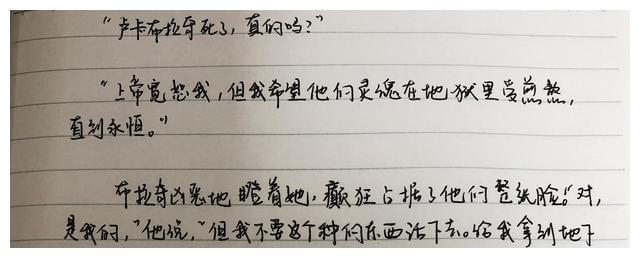 “卢卡布拉奇死了，真的吗？”
“上帝宽恕我，但我希望他的灵魂在地狱里受煎熬，
直到永恒。”
布拉奇凶恶地瞪着她，癫狂占据了他的整张脸。“对，
是我的，”他说，“但我不要这个种的东西活下去。给我拿到地下